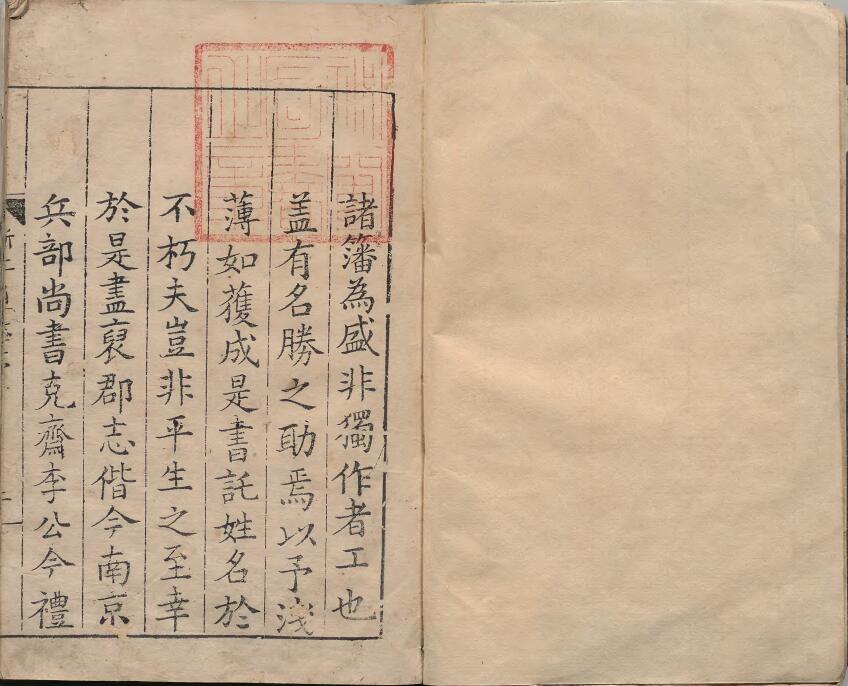 諸籓為盛非獨作者工也
盖有名勝之助焉以予淺
薄如獲成是書託姓名於
不朽夫豈非平生之至幸
於是盡裒郡志偕今南京
兵部尚書克齋李公今禮